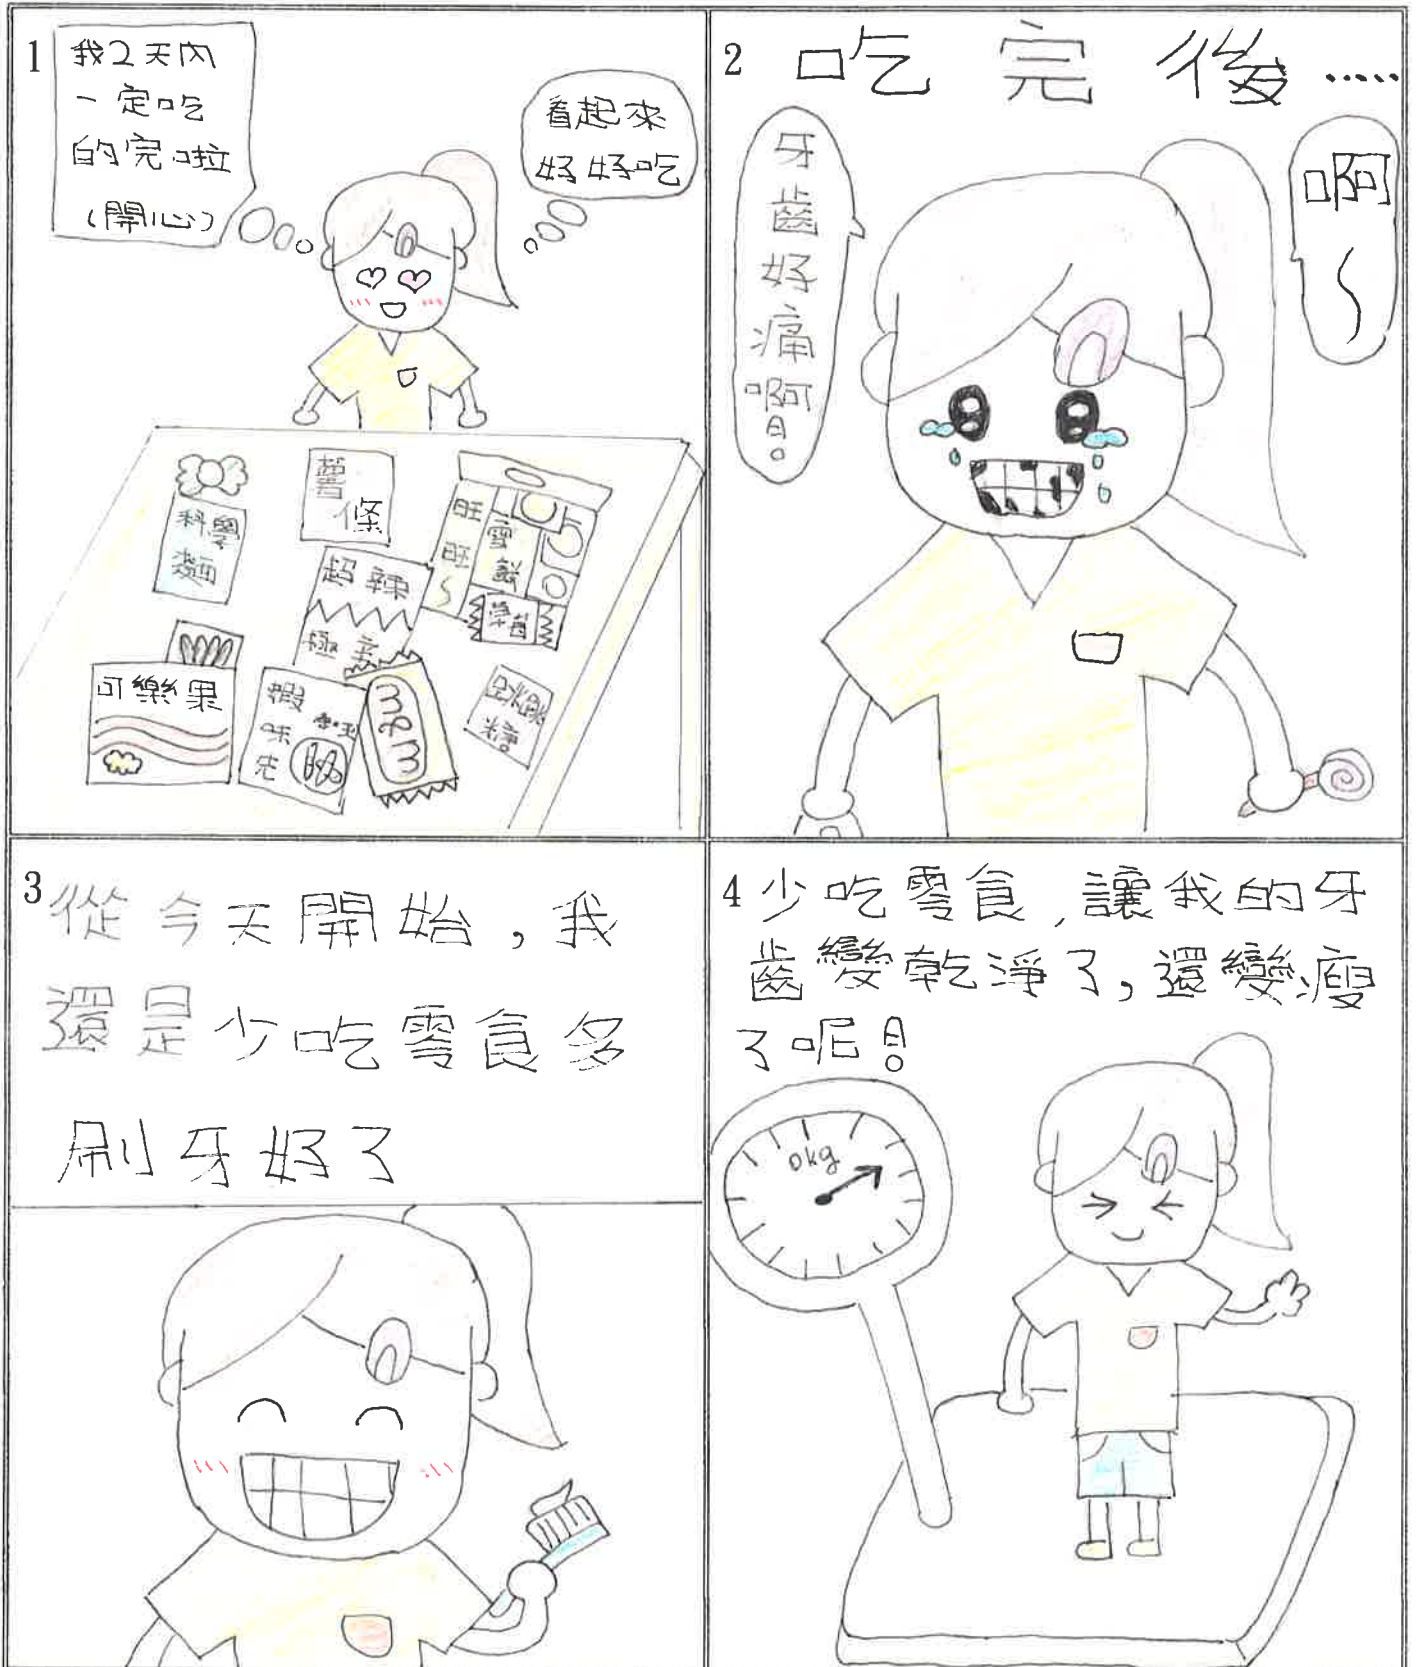 1
我2天內
一定吃
的完啦
(開心)
看起來
好好吃
薯
條
科學
麵
旺
旺
~
雪
餅
超辣
可樂果
蝦
味
先
m&m
跳跳
糖
2
吃完後……
牙齒好痛啊!
啊~
3
從今天開始，我
還是少吃零食多
刷牙好了
4
少吃零食,讓我的牙
齒變乾淨了,還變瘦
了呢!
0kg